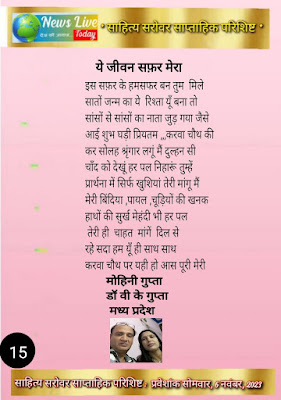 News Live
Today
देश की आवाज
* साहित्य सरोवर साप्ताहिक परिशिष्ट *
ये जीवन सफ़र मेरा
इस सफ़र के हमसफर बन तुम मिले
सातों जन्म का ये रिश्ता यूँ बना तो
सांसों से सांसों का नाता जुड़ गया जैसे
आई शुभ घड़ी प्रियतम ,,,करवा चौथ की
कर सोलह श्रृंगार लगूं मैं दुल्हन सी
चाँद को देखूं हर पल निहारूं तुम्हें
प्रार्थना में सिर्फ खुशियां तेरी मांगू मैं
मेरी बिंदिया ,पायल ,चूड़ियों की खनक
हाथों की सुर्ख मेहंदी भी हर पल
तेरी ही चाहत मांगें दिल से
रहे सदा हम यूँ ही साथ साथ
करवा चौथ पर यही हो आस पूरी मेरी
मोहिनी गुप्ता
डॉ वी के गुप्ता
मध्य प्रदेश
15
साहित्य सरोवर साप्ताहिक परिशिष्ट , प्रवेशांक सोमवार, 6 नवंबर, 2023